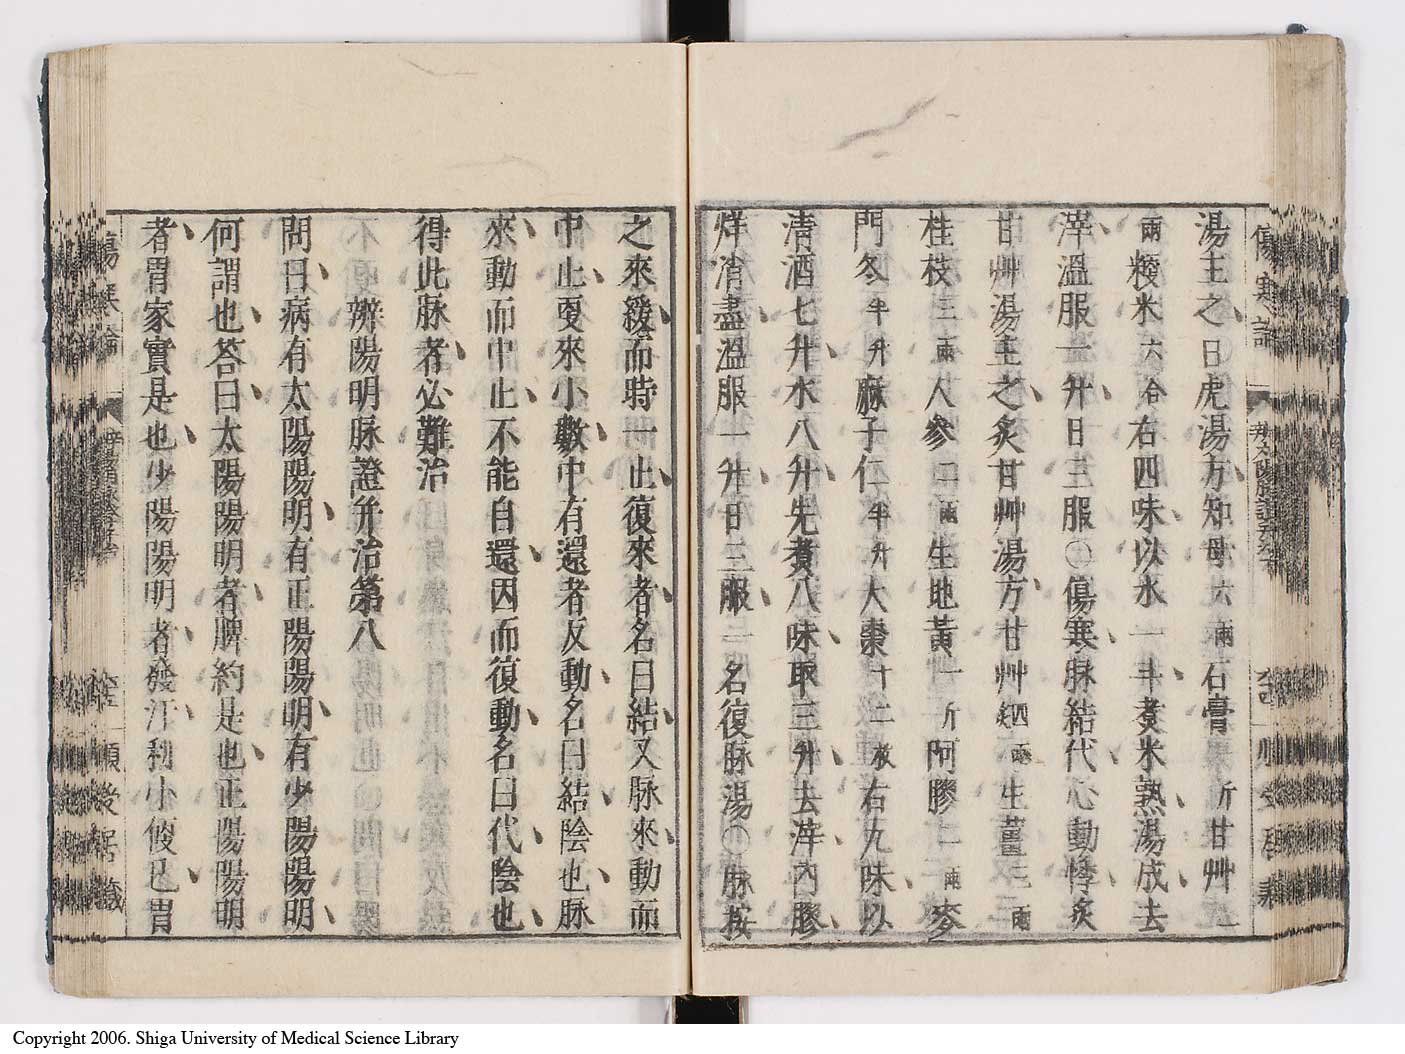 傷寒論
湯主之白虎湯方知母六兩石膏一斤甘艸二
兩粳米六合右四味以水一斗煮米熟湯成去
滓溫服一升日三服〇傷寒脉結代心動悸炙
甘艸湯主之炙甘艸湯方甘艸四兩生薑三兩
桂枝三兩人參二兩生地黃一斤阿膠二兩麥
門冬半升麻子仁半升大棗十二枚右九味以
淸酒七升水八升先煮八味取三升去滓內膠
烊消盡溫服一升日三服一名復脉湯〇脉按
之來緩而時一止復來者名曰結又脉來動而
中止更來小數中有還者反動名曰結陰也脉
來動而中止不能自還因而復動名曰代陰也
得此脉者必難治
辨陽明脉證并治第八
問曰病有太陽陽明有正陽陽明有少陽陽明
何謂也答曰太陽陽明者脾約是也正陽陽明
者胃家實是也少陽陽明者發汗利小便已胃
傷寒論
Copyright 2006. Shiga University of Medical Science Library